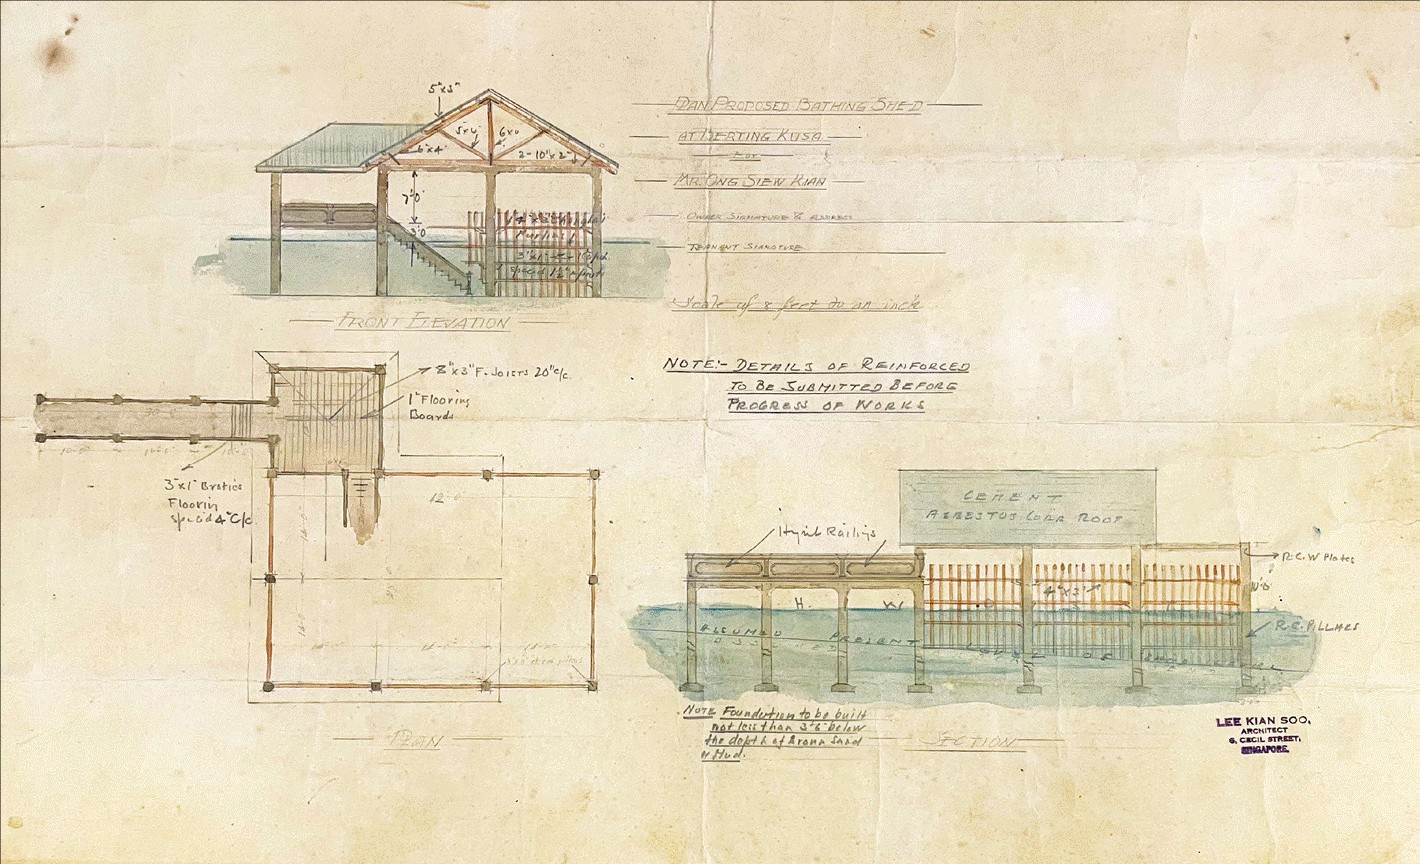 PLAN PROPOSED BATHING SHED
AT KERTING KUSA
FOR
MR. ONG SIEW KIAN
OWNER SIGNATURE & ADDRESS
TENNANT SIGNATURE
Scale of 8 feet to an inch
5"x3"
5x4
6x6
6"x4"
2-10"x2"
7'0"
3'0"
FRONT ELEVATION
NOTE:- DETAILS OF REINFORCED
TO BE SUBMITTED BEFORE
PROGRESS OF WORKS
8"x3" F. Joists 20" c/c.
1" Flooring
Boards
3"x1"
Floorin
spaced 4" c/c.
12'-0"
PLAN
CEMENT
ASBESTUS CORR ROOF
Railings
R.C.W Plates
4"x3"
H. W
R.C. PILLARS
ASSUMED PRESENT LEVEL OF
NOTE Foundation to be built
not less than 3'6" below
the depth of Sand
or Mud.
SECTION
LEE KIAN SOO,
ARCHITECT
6, CECIL STREET,
SINGAPORE.